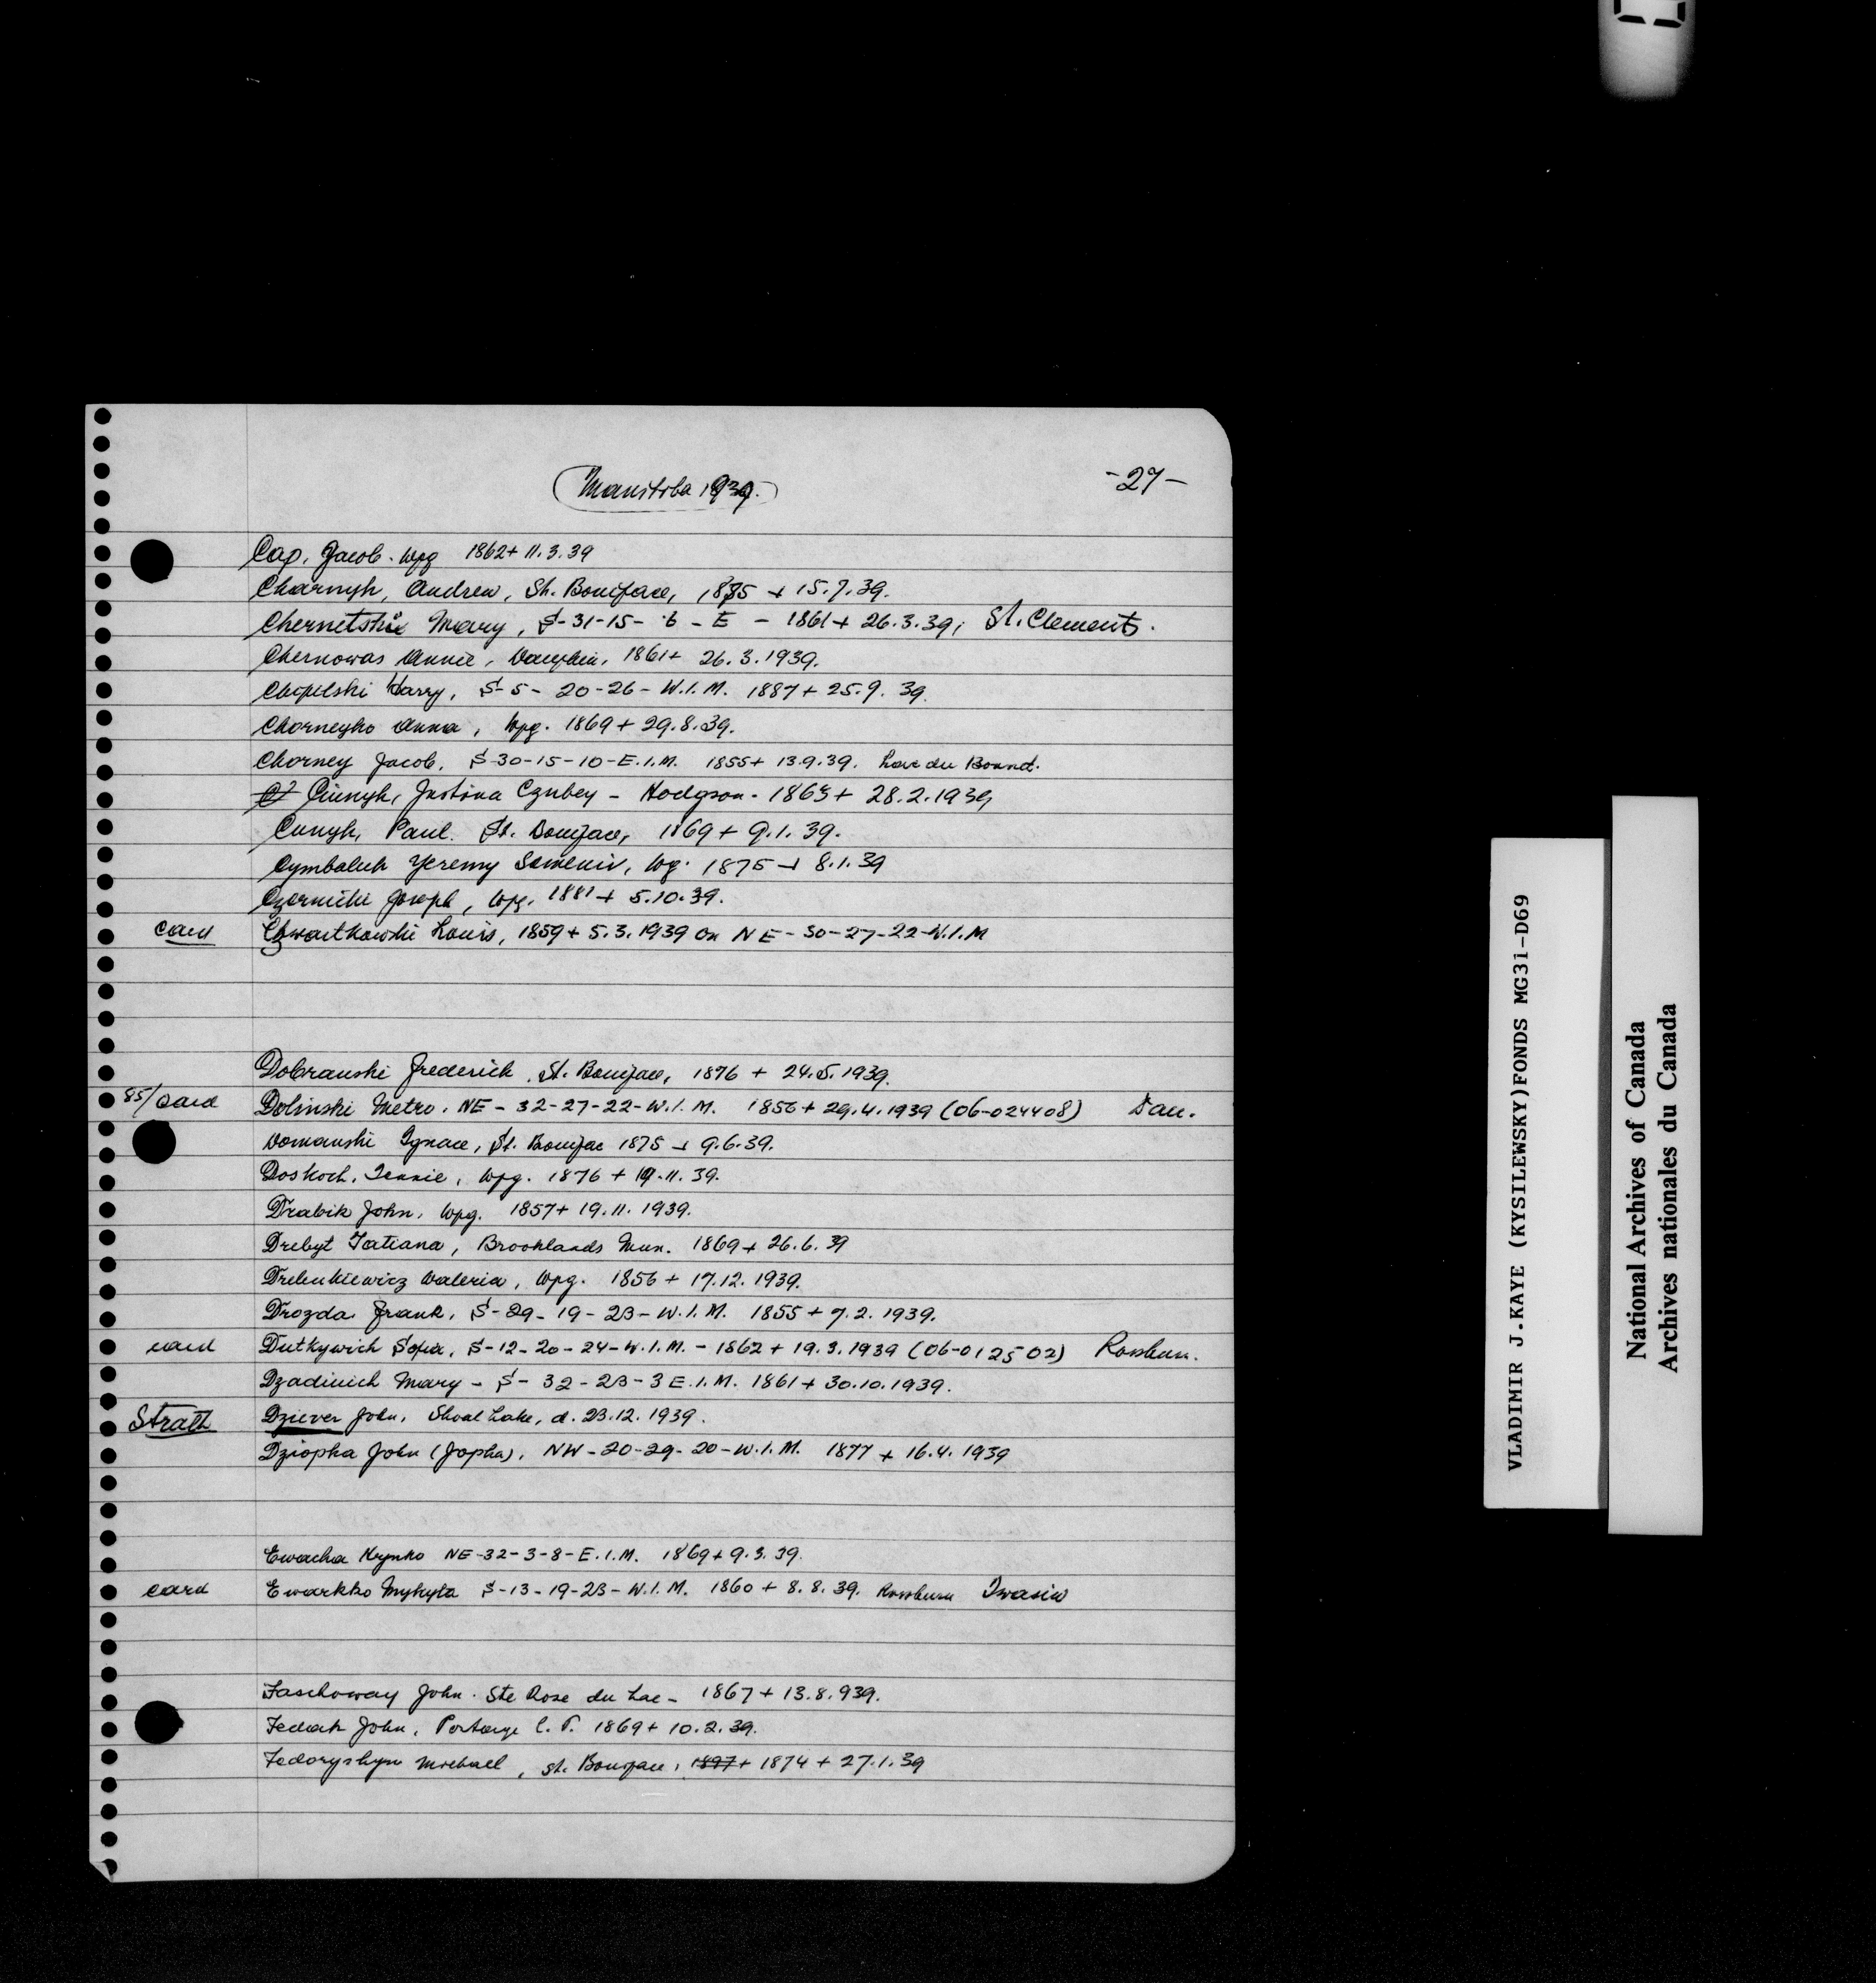 Manitoba 1939.
-27-
Cap, Jacob. Wpg 1862 + 11.3.39
Charnyh, Andrew, St. Boniface, 1885 + 15.7.39.
Chernetski Mary, S-31-15-6-E - 1861 + 26.3.39, St. Clements.
Chernowas Annie, Dauphin, 1861 + 26.3.1939.
Chipilski Harry, S-5-20-26-W.I.M. 1887 + 25.9.39.
Chorneyko Anna, Wpg. 1869 + 29.8.39.
Chorney Jacob, S-30-15-10-E.I.M. 1855 + 13.9.39. Lac du Bonnet.
Justina Czubey - Hodgson - 1863 + 28.2.1939
Cunyh, Paul. St. Boniface, 1869 + 9.1.39.
Cymbaluk Yeremy Semeniv, Wg. 1875 + 8.1.39
Joseph, Wpg. 1881 + 5.10.39.
card Louis, 1859 + 5.3.1939 on NE-30-27-22-W.I.M
Dobranski Frederick, St. Boniface, 1876 + 24.5.1939.
85/card Dolinski Metro, NE-32-27-22-W.I.M. 1856 + 29.4.1939 (06-024408) Dau.
Domanski Ignace, St. Bonifac 1875 + 9.6.39.
Doskoch, Jennie, Wpg. 1876 + 19.11.39.
Drabik John, Wpg. 1857 + 19.11.1939.
Drebyt Tatiana, Brooklands Mun. 1869 + 26.6.39
Waleria, Wpg. 1856 + 17.12.1939.
Drozda Frank, S-29-19-23-W.I.M. 1855 + 7.2.1939.
card Dutkywich Sofia, S-12-20-24-W.I.M. - 1862 + 19.3.1939 (06-012502) Rossburn.
Mary - S-32-23-3 E.I.M. 1861 + 30.10.1939.
Strath Dziever John, Shoal Lake, d. 23.12.1939.
Dziopha John (Jopha), NW-20-29-20-W.I.M. 1877 + 16.4.1939
Ewacha Hrynko NE-32-3-8-E.I.M. 1869 + 9.3.39.
card Ewarkko Mykyta S-13-19-23-W.I.M. 1860 + 8.8.39. Rossburn Iwasiw
Faschoway John. Ste Rose du Lac - 1867 + 13.8.939.
Fedak John, Portage l. P. 1869 + 10.2.39.
Fedoryshyn Michael, St. Boniface, 1897+ 1874 + 27.1.39
VLADIMIR J.KAYE (KYSILEWSKY)FONDS MG31-D69
National Archives of Canada
Archives nationales du Canada